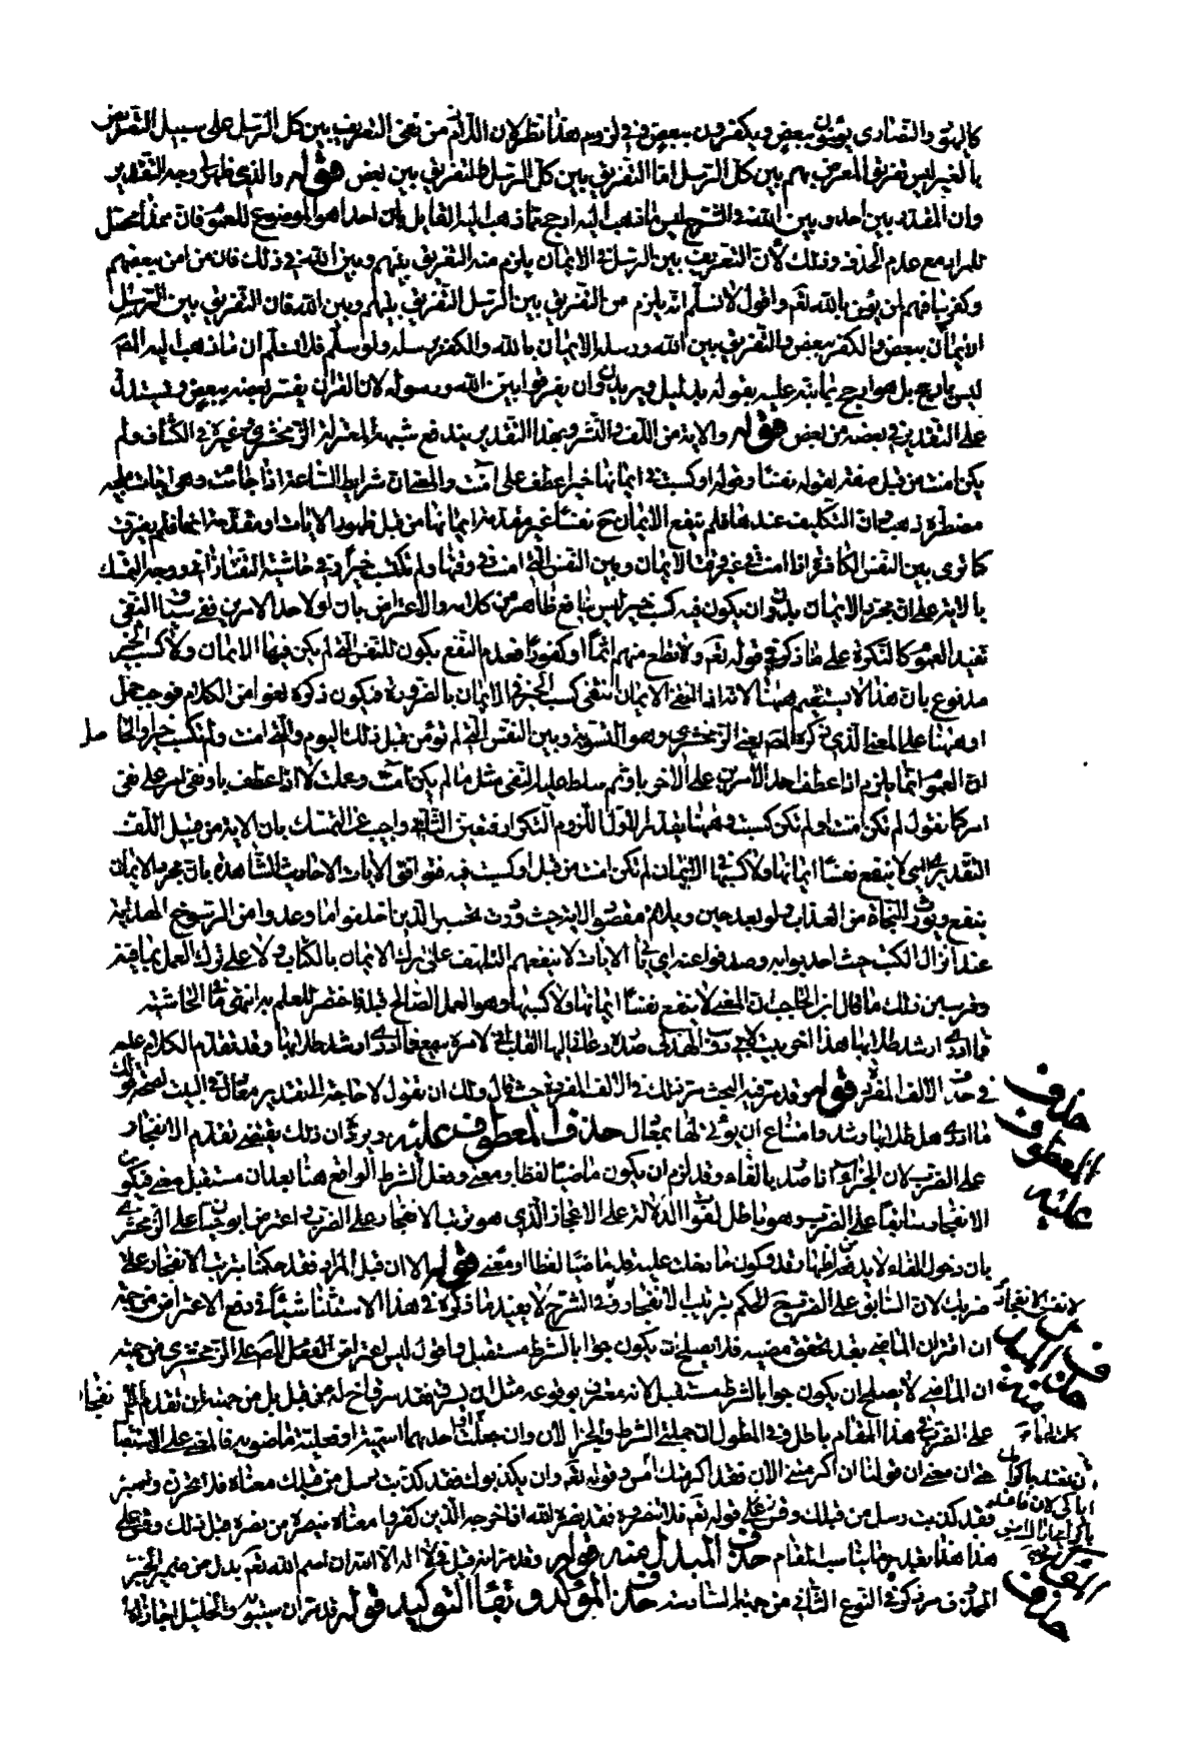 كاليهود والنصارى يؤمنون ببعض ويكفرون ببعض وفي لزوم هذا نظر لان اللازم من نفي التفريق بين كل الرسل على سبيل التعريض
بالغير ليس تفريق المعرض بهم بين كل الرسل اما التفريق بين كل الرسل فالتفريق بين بعض قوله والذي ظهر لي وجه التقدير
وان المقدر بين احد وبين الله في الشرح ليس ما ذهب اليه ارجح مما ذهب اليه القايل بان احدا هو الموضوع للعموم فان هذا محصل
للمراد مع عدم الحذف وذلك لان التفريق بين الرسل في الايمان يلزم منه التفريق بينهم وبين الله في ذلك فان من امن ببعضهم
وكفر بباقيهم لن يؤمن بالله نعم واقول لا نسلم انه يلزم من التفريق بين الرسل التفريق بينهم وبين الله فان التفريق بين الرسل
الايمان ببعض والكفر ببعض والتفريق بين الله ورسله الايمان بالله والكفر برسله ولو سلم فلا نسلم ان ما ذهب اليه المص
ليس بارجح بل هو ارجح بما نبه عليه بقوله بدليل ويريدون ان يفرقوا بين الله ورسوله لان القران يفسر بعضه ببعض ويستدل
على التقدير في بعضه من بعض قوله والاية من اللف والنشر وبهذا التقدير يندفع شبهة المعتزلة الزمخشري وغيره في الكشاف ولم
يكن امنت من قبل صفة لقوله نفسا وقوله او كسبت في ايمانها خيرا عطف على آمنت والمعنى ان شرايط الساعة اذا جاءت وهي ايات ملجئة
مضطرة ذهب اوان التكليف عندها فلم ينفع الايمان ح نفسا غير مقدمة ايمانها من قبل ظهور الايات او مقدمة ايمانها فلم يفرق
كما ترى بين النفس الكافرة اذا امنت في غير وقت الايمان وبين النفس التي امنت في وقتها ولم تكسب خيرا وفي حاشية التفتازاني ووجه التمسك
بالاية على ان مجرد الايمان بدون ان يكون فيه كسب خير ليس بنافع ظاهر من كلامه والاعتراض بان او لاحد الامرين ففي سياق النفي
تفيد العموم كالنكرة على ما ذكر في قوله نعم ولا تطع منهم اثما او كفورا فعدم النفع يكون للنفس التي لم يكن فيها الايمان ولا كسب الخير
مدفوع بان هذا لا يستقيم ههنا لانه اذا انتفى الايمان انتفى كسب الخير في الايمان بالضرورة فيكون ذكره لغوا من الكلام فوجب حمل
او ههنا على المعنى الذي ذكره المص يعني الزمخشري وهو التسوية وبين النفس التي لم تؤمن قبل ذلك اليوم والتي امنت ولم تكسب خيرا والحاصل
ان العموم انما يلزم اذا عطف احد الامرين على الاخر باو ثم سلط عليه النفي مثل ما لم يكن آمنت وعملت لا اذا عطف باو نفى امر على نفى
امر كما نقول لم تكن امنت او لم تكن كسبت وههنا يتعذر الاول للزوم التكرار فتعين الثاني واجيب عن التمسك بان الاية من قبيل اللف
التقديري اي لا ينفع نفسا ايمانها ولا كسبها في الايمان لم تكن امنت من قبل او كسبت فيه فتوافق الايات الاحاديث الشاهدة بان مجرد الايمان
ينفع ويورث النجاة من العذاب ولو بعد حين ويلائم مقصود الاية حيث وردت تحسيرا للذين اخلفوا ما وعدوا من الرسوخ الهداية
عند انزال الكتب حيث احد بوابه وصدفوا عنه اي ... الايات لا ينفعهم التلهف على ترك الايمان بالكتاب ولا على ترك العمل بما فيه
وقريب من ذلك ما قال ابن الحاجب ان المعنى لا ينفع نفسا ايمانها ولا كسبها وهو العمل الصالح قبله فاختصر للعلم به انتهى ما في الحاشية
فما ادري ارشد طلابها هذا اخر بيت لابي ذويب الهذلي صدره دعاني اليها القلب اني لامره سميع فما ادري ارشد طلابها وقد تقدم الكلام عليه
في حذف الالف المفردة قوله وقد مر فيه البحث مر ذلك في الالف المفردة حيث قال ولك ان تقول لا حاجة الى تقدير معادل في البيت لصحة قولك
ما ادري هل طلابها رشد وامتناع ان يؤتى لها بمعادل حذف المعطوف عليه ويرد ان ذلك يقتضي تقدم الانفجار
على الضرب لان الجزاء اذا صدر بالفاء وقد لزم ان يكون ماضيا لفظا ومعنى وفعل الشرط الواقع هنا بعد ان مستقبل معنى فيكون
الانفجار سابقا على الضرب وهو باطل لفوات الدلالة على الاعجاز الذي هو ترتب الانفجار على الضرب واعترض ابو حيان على الزمخشري
بان دخول الفاء لا بد من اظهار قد فيكون ما دخلت عليه قد ماضيا لفظا ومعنى قوله الا ان قيل المراد فقد حكمنا بترتب الانفجار على
ضربك لان السابق على الضرب ح الحكم بترتيب الانفجار وفي الشرح لا يفيد ما ذكره في هذا الاستثناء شيئا في دفع الاعتراض من جهة
ان اقتران الماضي بقد يحقق مضيه فلا يصلح ان يكون جوابا لشرط مستقبل واقول ليس اعتراض المص على الزمخشري من جهة
ان الماضي لا يصلح ان يكون جوابا لشرط مستقبل لانه معترف بوقوعه مثل ان يسرق فقد سرق اخ له من قبل بل من جهة ان تقدم الانفجار
على الضرب في هذا المقام باطل في المطول ان جملتي الشرط والجزاء لان وان جعلت احدهما اسمية او فعلية ماضوية فالمعنى على الاستقبال
حتى ان معنى ان قولنا ان اكرمتني الان فقد اكرمتك امس وقوله نعم وان يكذبوك فقد كذبت رسل من قبلك معناه فلا تحزن واصبر
فقد كذبت رسل من قبلك وقس على قوله نعم فلا تنصروه فقد نصره الله اذ اخرجه الذين كفروا معناه ينصره من نصره قبل ذلك وقس على
هذا هذا يفيد جوابا يناسب المقام حذف المبدل منه قوله وقد مر انه قيل في لا اله الا الله ان اسم الله نعم بدل من ضمير الخبر
المحذوف مر ذكره في النوع الثاني من جهة السادسة حذف المؤكد وبقاء التوكيد قوله قد مر ان سيبويه والخليل اجازاه
حذف
المعطوف
عليه
حذف المبدل
منه
حذف
المؤكد